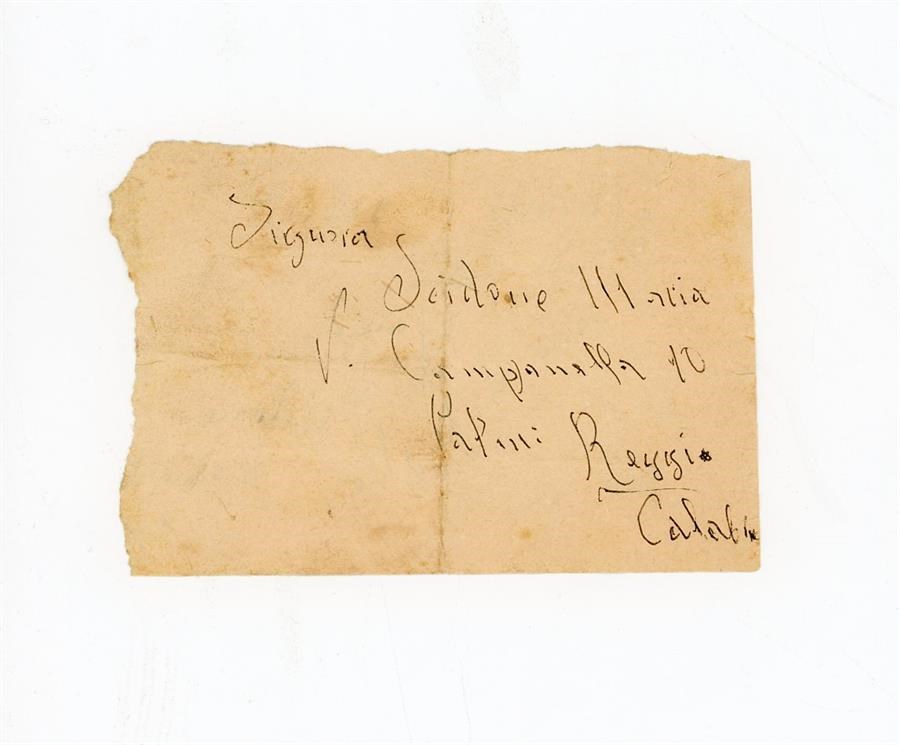 Signora
Scidone Maria
V. Campanella 10
Palmi Reggio
Calabr